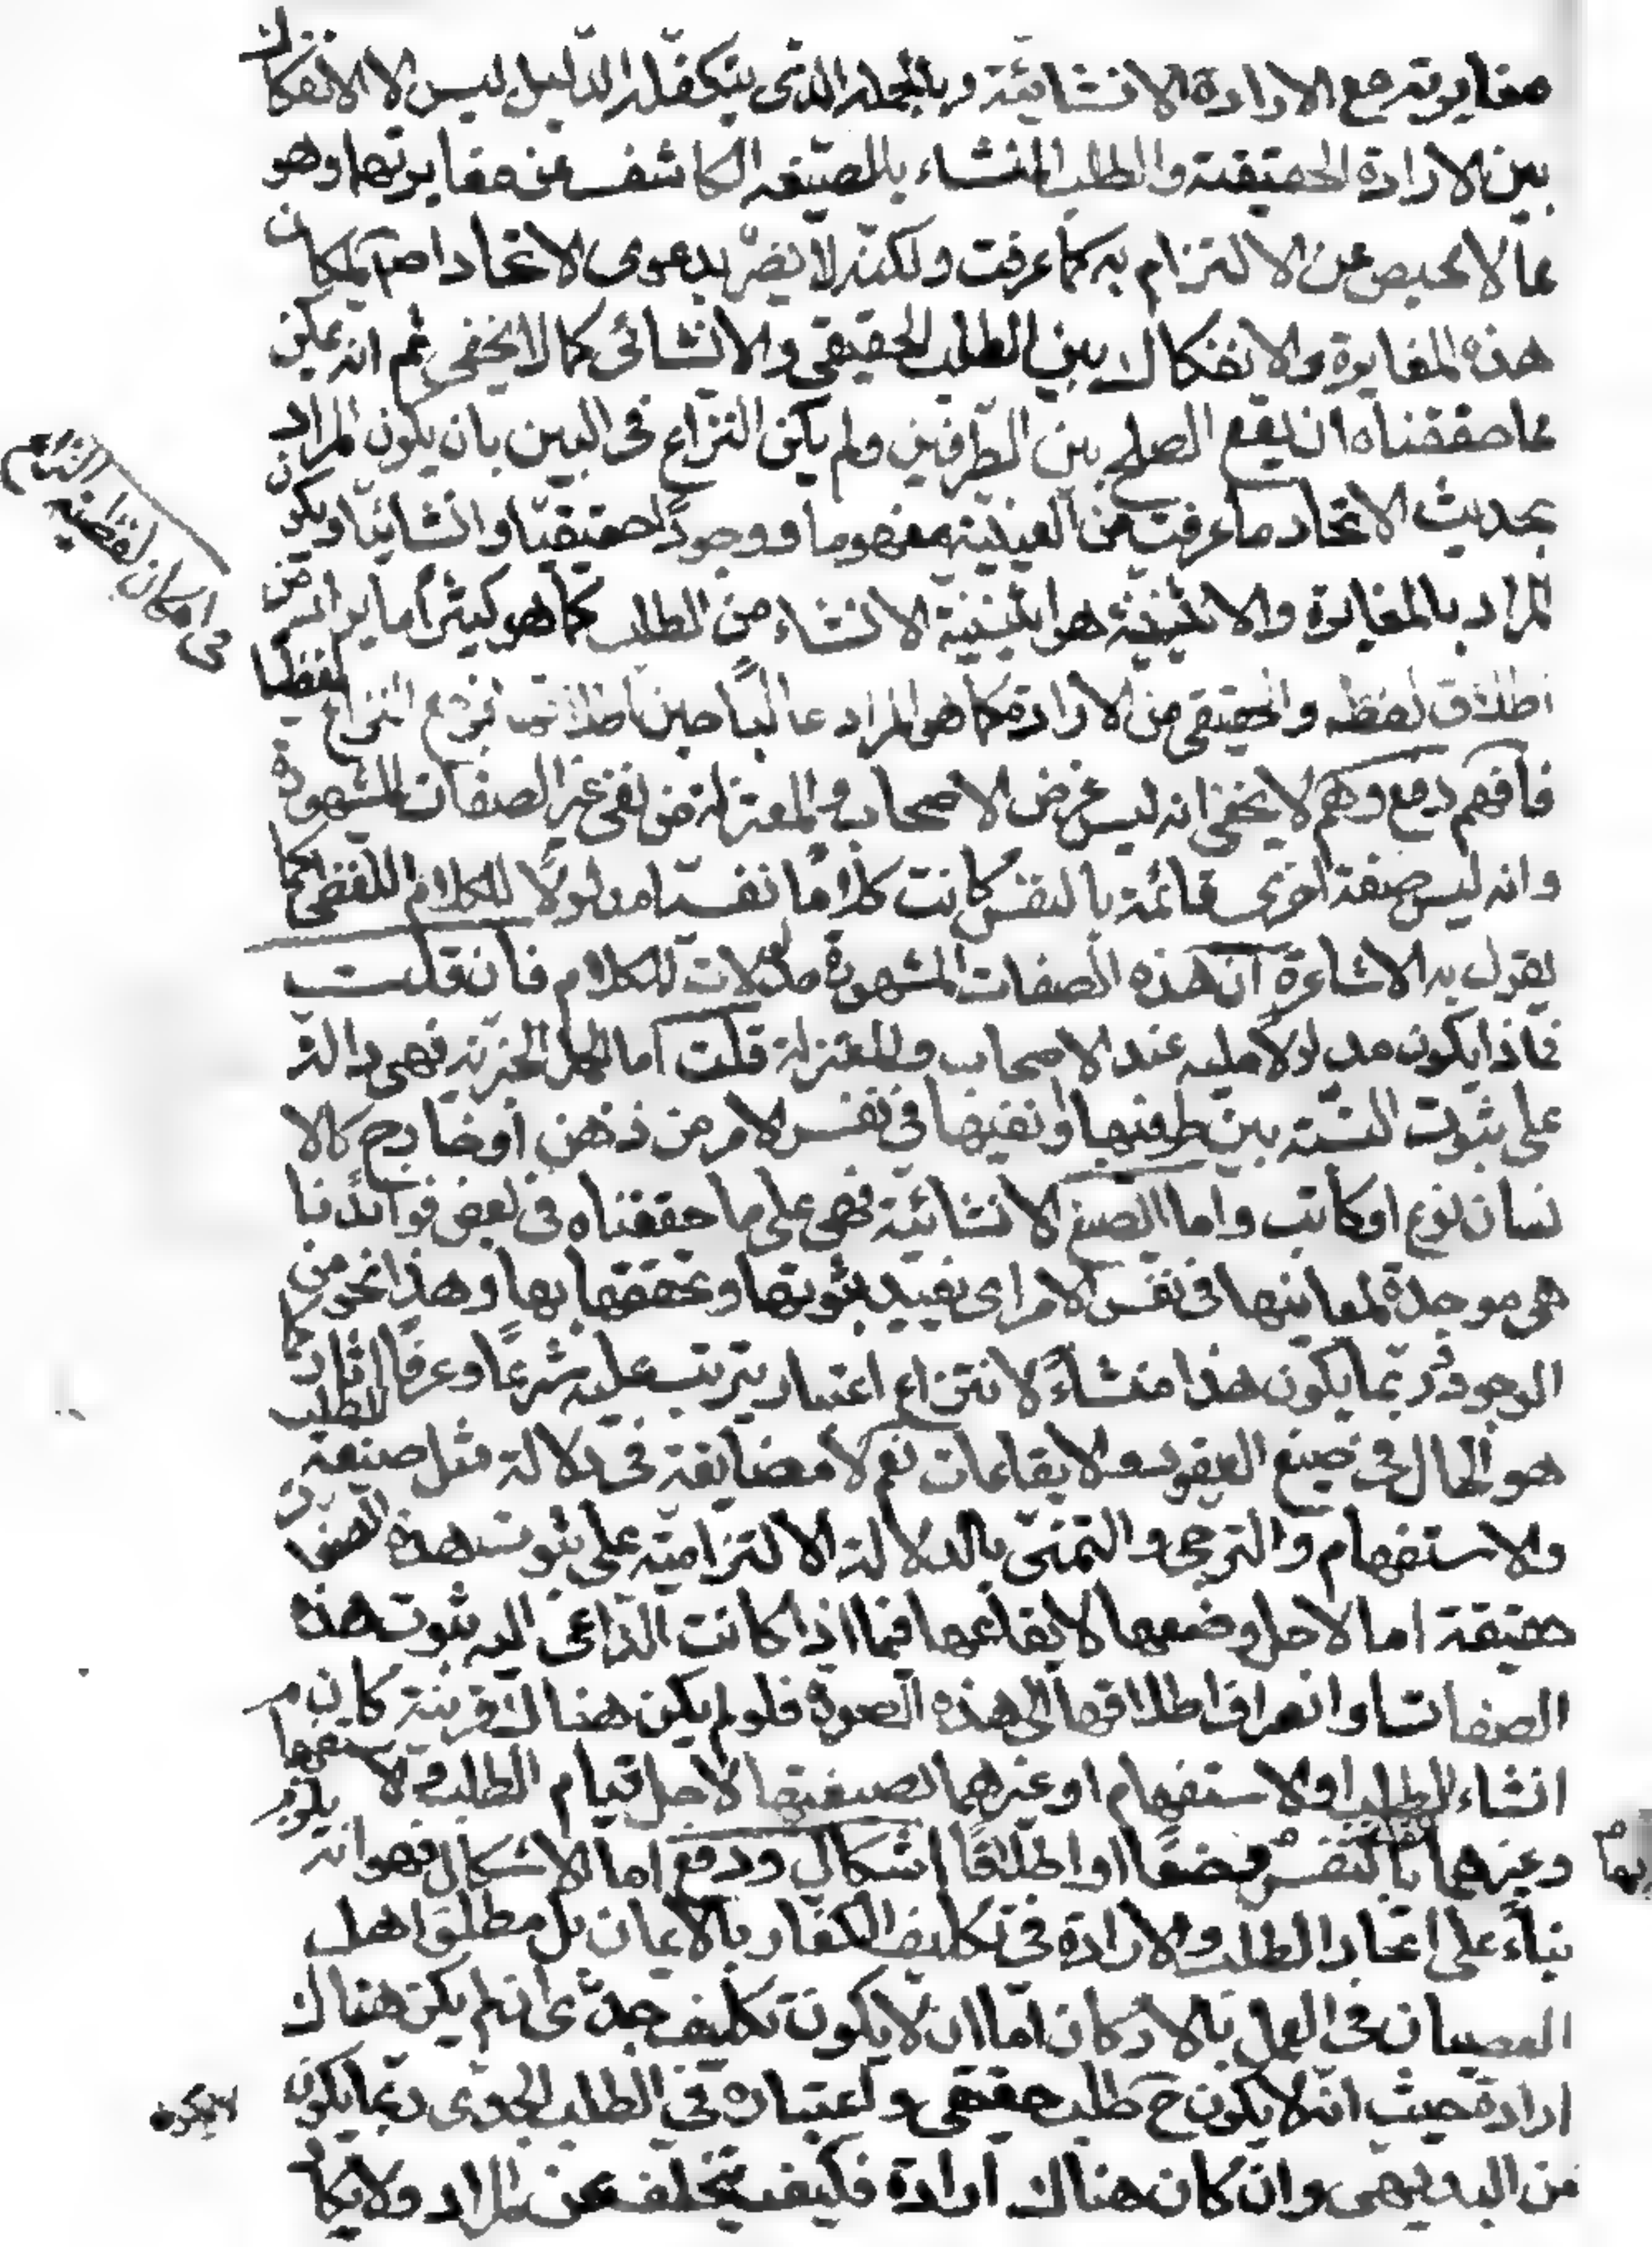 مغايرته مع الارادة الانشائيّة وبالجملة الذى يتكفّله الدّليل ليس الا الانفكاك
بين الارادة الحقيقية والطلب المنشاء بالصّيغه الكاشف عن مغايرتهما وهو
مما لا محيص عن الالتزام به كما عرفت ولكنّه لا يضرّ بدعوى الاتحاد اصلا لمكان
هذه المغايرة والانفكاك بين الطلب الحقيقى والانشائى كما لا يخفى ثم انه يمكن
مما حققناه ان يقع الصلح بين الطّرفين ولم يكن النزاع فى البين بان يكون المراد
بحديث الاتحاد ما عرفت من العينية مفهوما ووجودًا حقيقيّا وانشائيّا ويكون
المراد بالمغايرة والاثنينية هو اثنينية الانشاء من الطلب كما هو كثيرًا ما يراد من
اطلاق لفظه والحقيقى من الارادة كما هو المراد غالبًا حين اطلاقها فيرجع النزاع لفظيا
فى امكان لفظية النزاع
فافهم دفع وهم لا يخفى انه ليس غرض الاصحاب والمعتزلة من نفى غير الصفات المشهورة
وانه ليس صفة اخرى قائمة بالنفس كانت كلامًا نفسيا مدلولًا للكلام اللفظى كما
يقول به الاشاعرة ان هذه الصفات المشهورة مدلولات للكلام فان قلت
فماذا يكون مدلولا عليه عند الاصحاب والمعتزلة قلت اما الجمل الخبرية فهى دالة
على ثبوت النسبة بين طرفيها او نفيها فى نفس الامر من ذهن او خارج كالا
نسان نوع او كاتب واما الصيغ الانشائية فهى على ما حققناه فى بعض فوائدنا
هى موجدة لمعانيها فى نفس الامر اى تفيد ثبوتها وتحققها بها وهذا نحو من
الوجود وربّما يكون هذا منشاءً لانتزاع اعتبار يترتب عليه شرعًا وعرفا اثار كما
هو الحال فى صيغ العقود والايقاعات نعم لا مضايقة فى دلالة مثل صيغة الطلب
والاستفهام والترجى والتمنّى بالدلالة الالتزاميّة على ثبوت هذه الصفات
حقيقة اما لاجل وضعها لايقاعها فيما اذا كانت الدّاعى اليه ثبوت هذه
الصفات او انصراف اطلاقها الى هذه الصورة فلو لم يكن هناك قرينة كان
انشاء الطلب او الاستفهام او غيرهما بصيغتها لاجل قيام الطلب والاستفهام
وغيرهما بالنفس وضعًا او اطلاقًا اشكال ودفع اما الاشكال فهو انه يلزم
بناءً على اتحاد الطلب والارادة فى تكليف الكفّار بالايمان بل مطلق اهل
العصيان فى العمل بالاركان امّا ان لا يكون تكليف جدّى ان لم يكن هناك
ارادة حيث انّه لا يكون ح طلب حقيقى واعتباره فى الطلب الجدى ربّما يكون
لا يكون
من البديهى وان كان هناك ارادة فكيف تتخلف عن المراد ولا يكاد